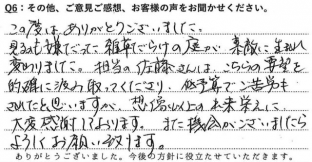 Q6：その他、ご意見ご感想、お客様の声をお聞かせください。
この度はありがとうございました。
見るも嫌だった雑草だらけの庭が素敵に生まれ
変わりました。担当の佐藤さんは、こちらの要望を
的確に汲み取ってくださり、低予算でご苦労も
されたと思いますが、想像以上の出来栄えに
大変感謝しております。また機会がございましたら
よろしくお願い致します。
ありがとうございました。今後の方針に役立たせていただきます。